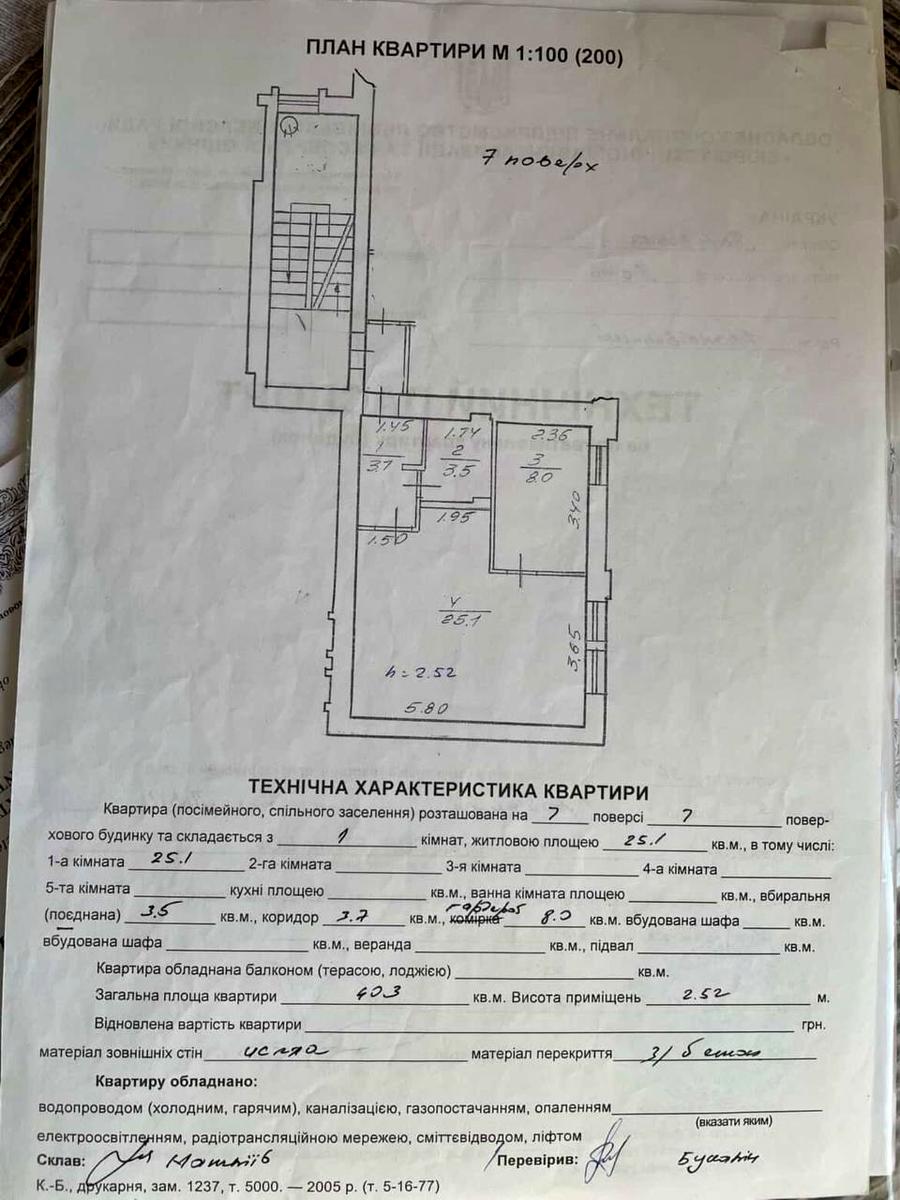 ПЛАН КВАРТИРИ М 1:100 (200)
7 поверх
1.45
1.74
2.36
1
3.7
2
3.5
3
8.0
3.40
1.95
1.50
4
25.1
3.65
h = 2.52
5.80
ТЕХНІЧНА ХАРАКТЕРИСТИКА КВАРТИРИ
Квартира (посімейного, спільного заселення) розташована на 7 поверсі 7 повер-
хового будинку та складається з 1 кімнат, житловою площею 25.1 кв.м., в тому числі:
1-а кімната 25.1 2-га кімната 3-я кімната 4-а кімната
5-та кімната кухні площею кв.м., ванна кімната площею кв.м., вбиральня
(поєднана) 3.5 кв.м., коридор 3.7 кв.м., комірка гардероб 8.0 кв.м. вбудована шафа кв.м.
вбудована шафа кв.м., веранда кв.м., підвал кв.м.
Квартира обладнана балконом (терасою, лоджією) кв.м.
Загальна площа квартири 40.3 кв.м. Висота приміщень 2.52 м.
Відновлена вартість квартири грн.
матеріал зовнішніх стін цегла матеріал перекриття з/бетон
Квартиру обладнано:
водопроводом (холодним, гарячим), каналізацією, газопостачанням, опаленням
(вказати яким)
електроосвітленням, радіотрансляційною мережею, сміттєвідводом, ліфтом
Склав: Перевірив:
К.-Б., друкарня, зам. 1237, т. 5000. — 2005 р. (т. 5-16-77)